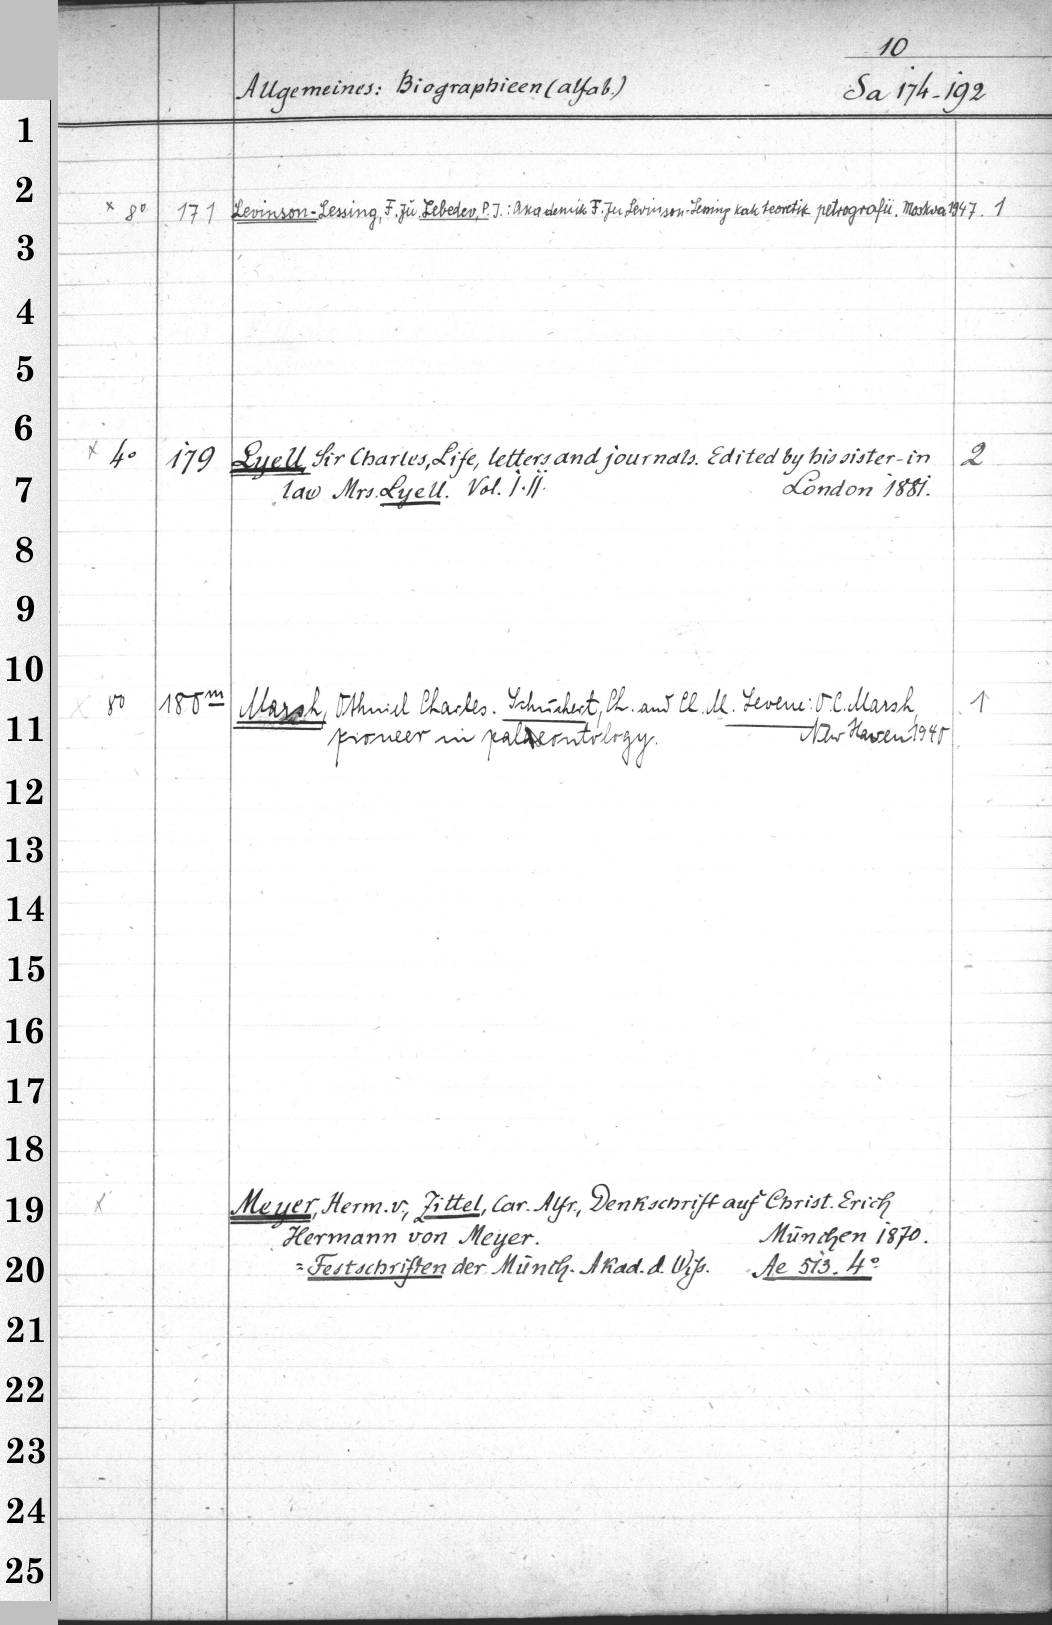 10
Allgemeines: Biographieen (alfab.) Sa 174-192
1
2
x 8° 171 Levinson-Lessing, F. Ju. Lebedev, P. I.: Akademik F. Ju Levinson-Lessing kak teoretik petrografii. Moskva 1947. 1
3
4
5
6
x 4° 179 Lyell, Sir Charles, Life, letters and journals. Edited by his sister-in 2
7 law Mrs. Lyell. Vol. I.II. London 1881.
8
9
10
x 8° 180m Marsh, Othniel Charles. Schuchert, Ch. and Cl. M. Levene: O. C. Marsh, 1
11 pioneer in palaeontology. New Haven 1940
12
13
14
15
16
17
18
19 x Meyer, Herm. v., Zittel, Car. Alfr., Denkschrift auf Christ. Erich
Hermann von Meyer. München 1870.
20 = Festschriften der Münch. Akad. d. Wiss. Ae 513. 4°
21
22
23
24
25